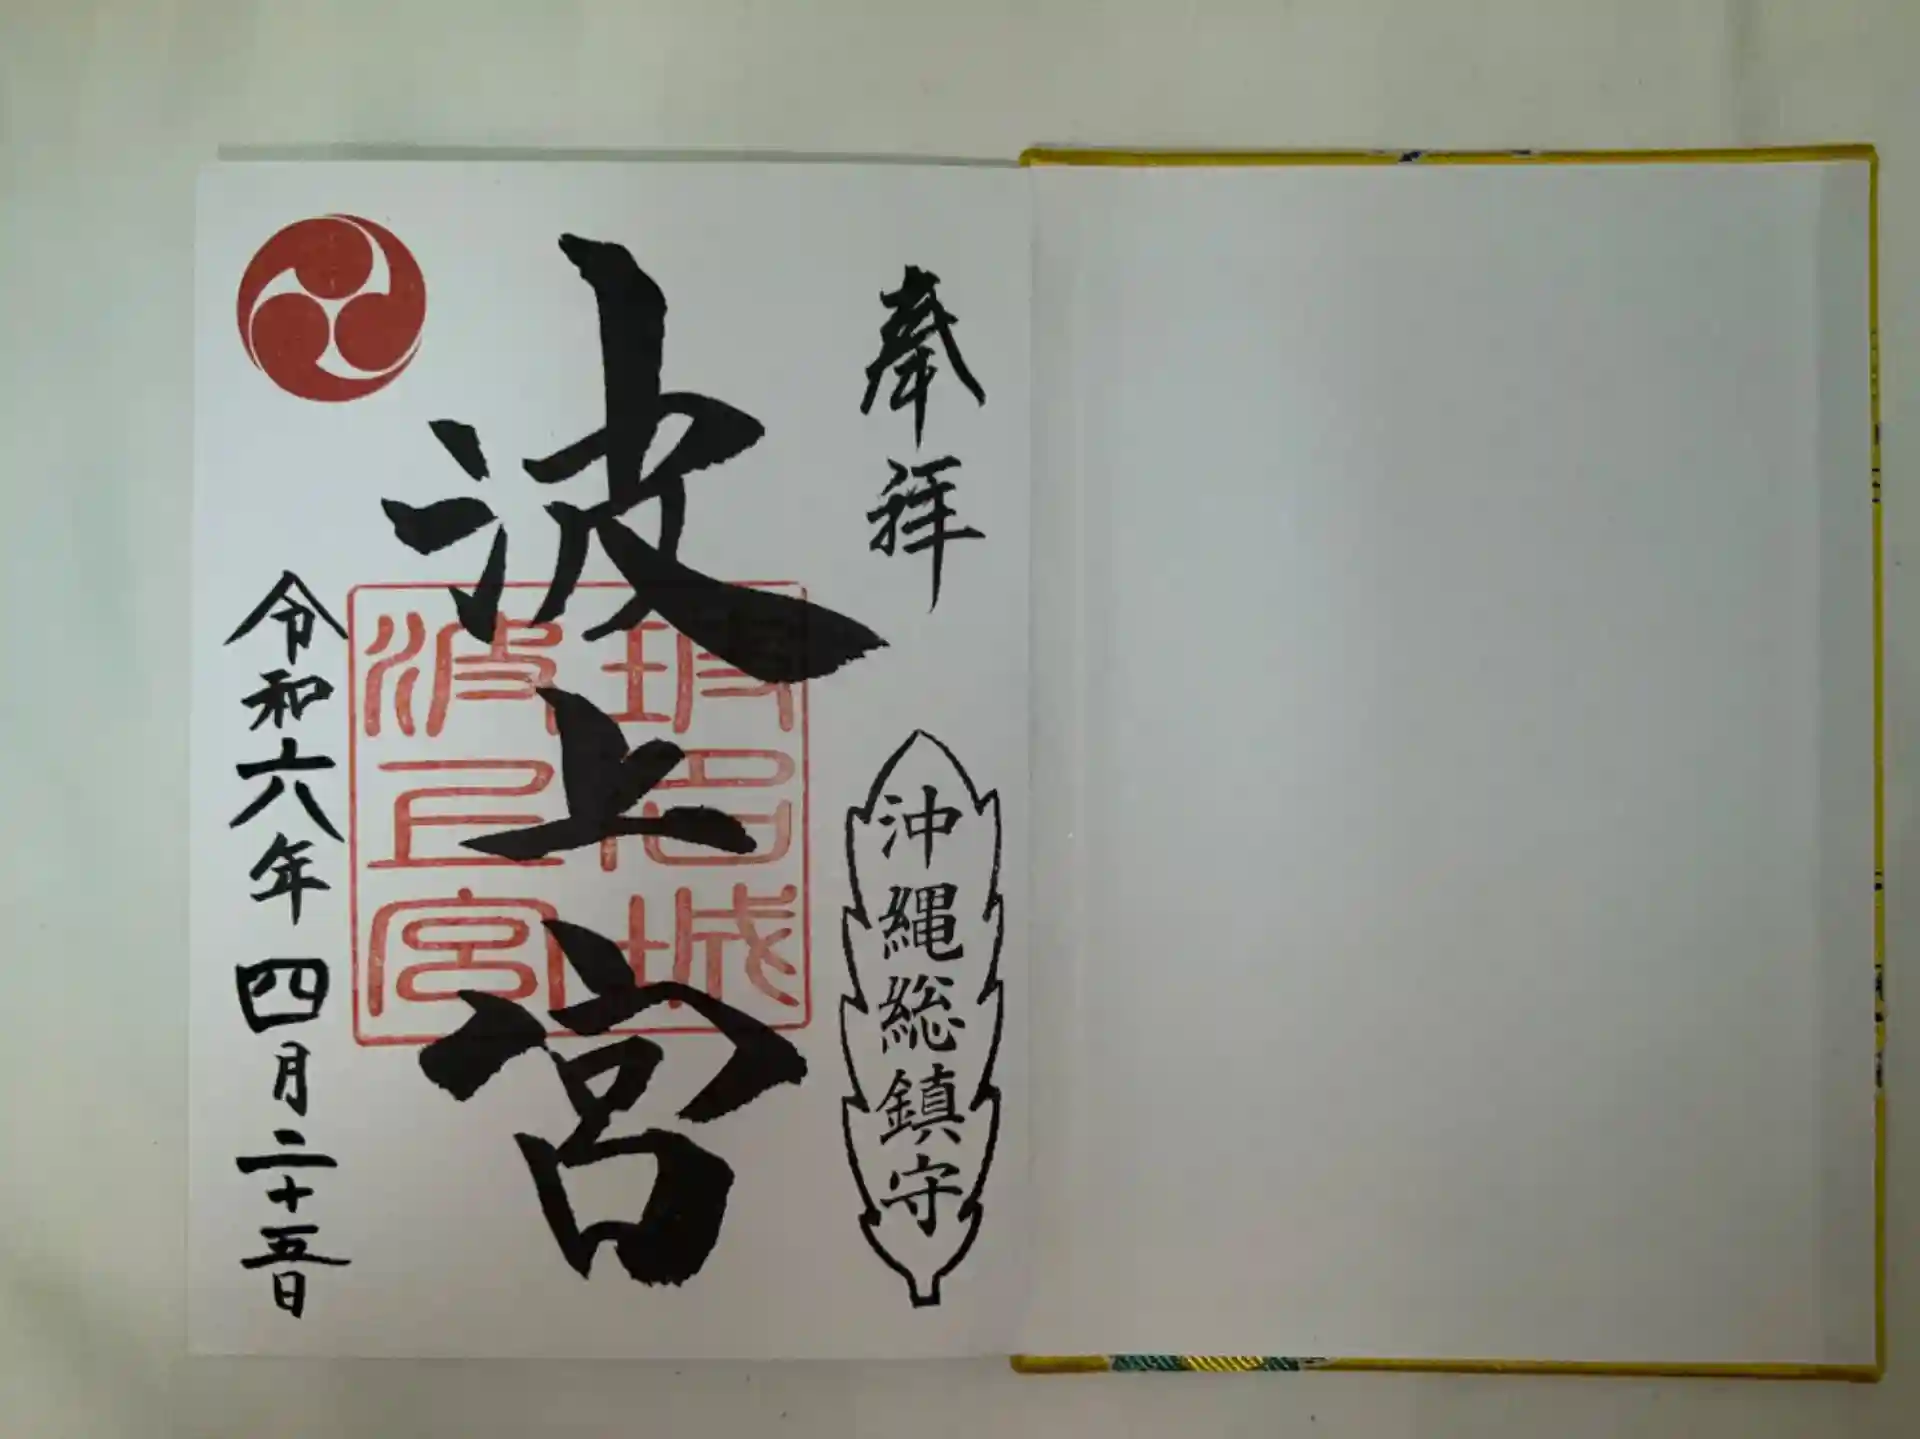 奉拝
沖縄総鎮守
波上宮
琉球国
波上宮
令和六年四月二十五日